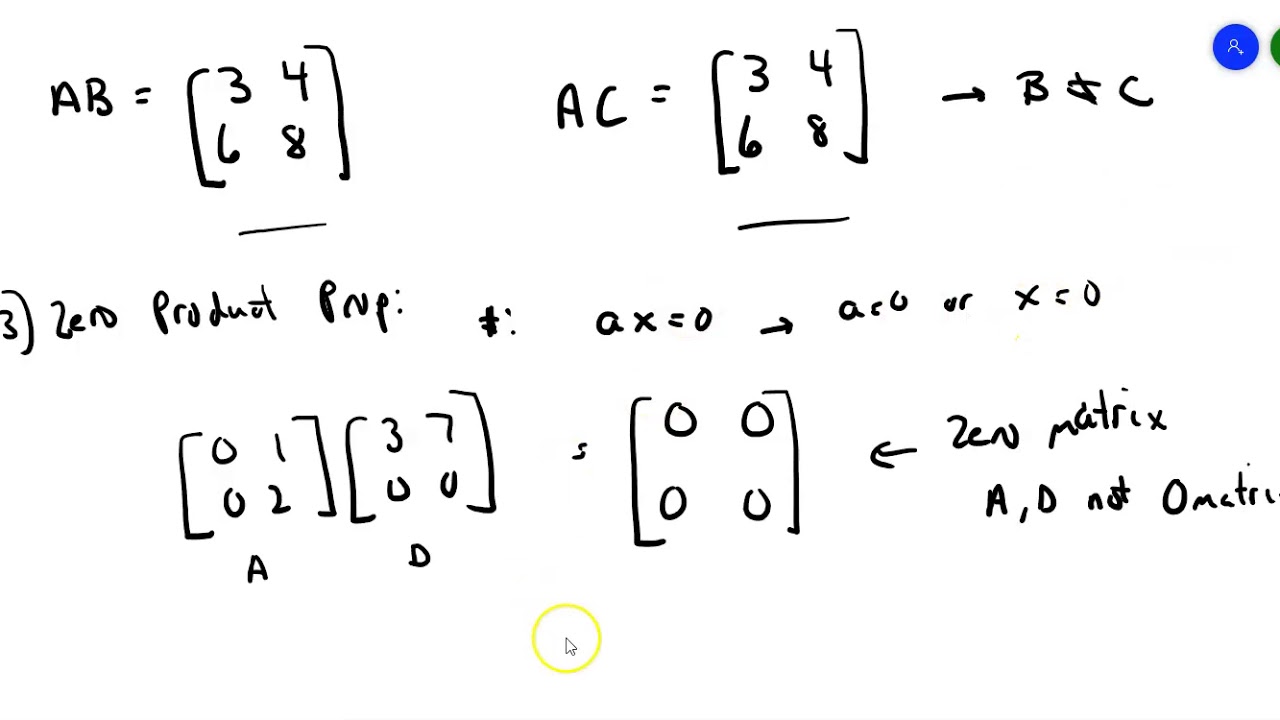 AB = [3 4; 6 8] AC = [3 4; 6 8] → B ≠ C
3) Zero Product Prop: #: ax=0 → a=0 or x=0
[0 1; 0 2] [3 7; 0 0] = [0 0; 0 0] ← Zero matrix
A D A, D not 0 matri